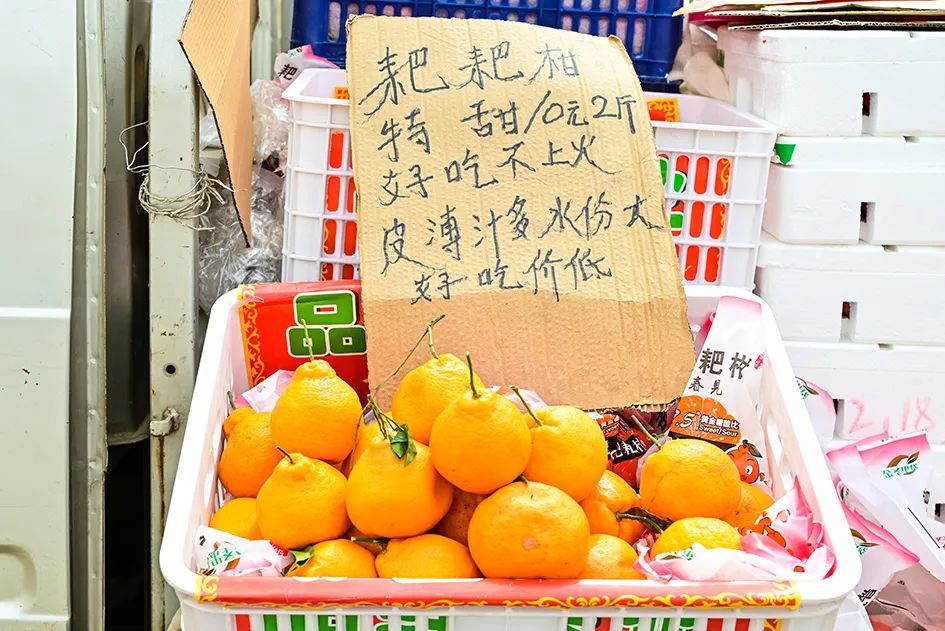 耙耙柑
特 甜甘10元2斤
好吃不上火
皮薄汁多水份大
好吃价低
品
耙柑
春見
黄金糖酸比
(Sweet)(Sour)
2.18